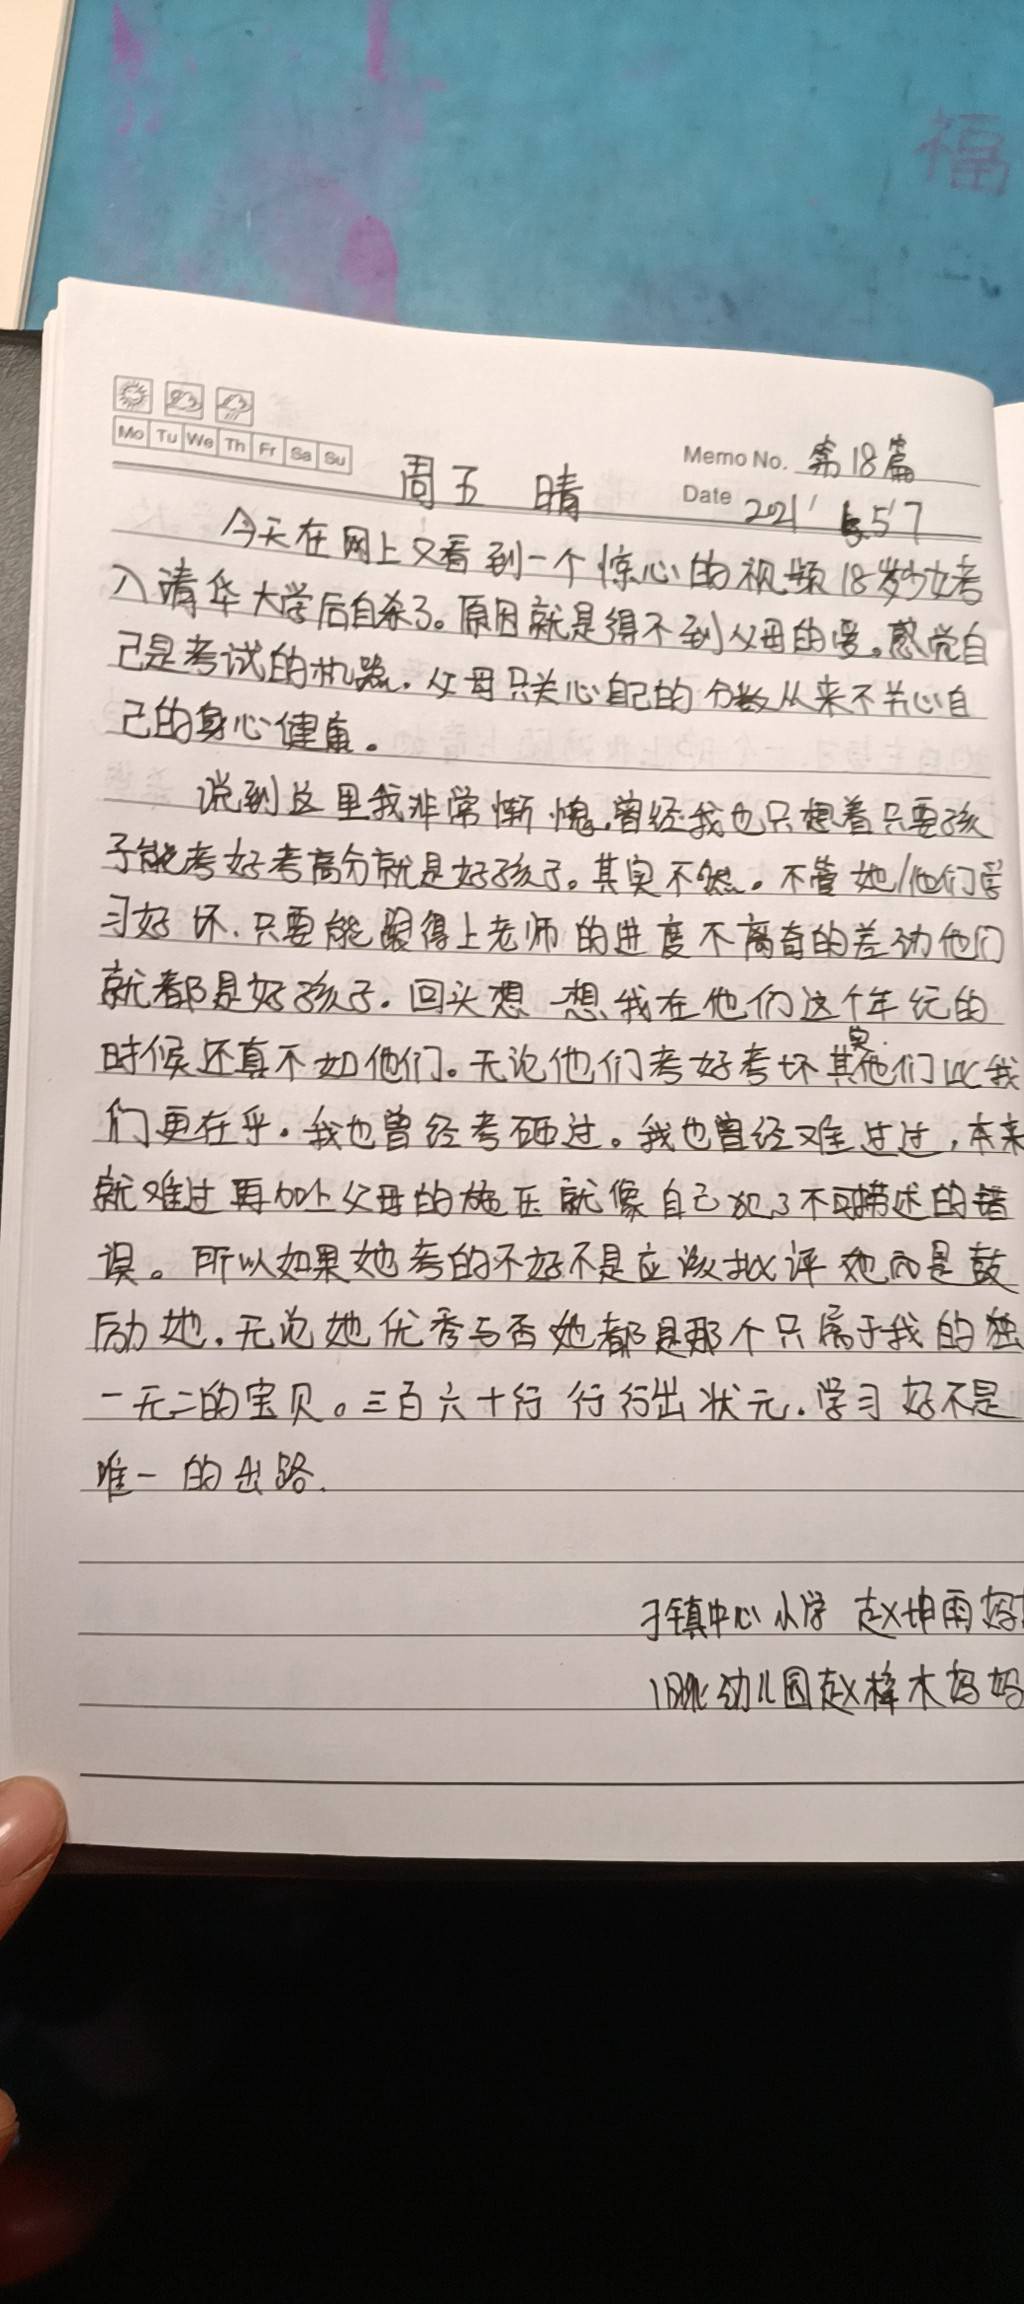 福
Mo Tu We Th Fr Sa Su
Memo No. 第18篇
周五 晴
Date 2021' 5'7
今天在网上又看到一个惊心的视频18岁少女考
入清华大学后自杀了。原因就是得不到父母的爱。感觉自
己是考试的机器.父母只关心自己的分数从来不关心自
己的身心健康。
说到这里我非常惭愧.曾经我也只想着只要孩
子能考好考高分就是好孩子。其实不然。不管她/他们学
习好坏.只要能跟得上老师的进度不离奇的差劲他们
就都是好孩子.回头想一想我在他们这个年纪的
时候还真不如他们。无论他们考好考坏其实他们比我
们更在乎.我也曾经考砸过。我也曾经难过过,本来
就难过再加上父母的施压就像自己犯了不可描述的错
误。所以如果她考的不好不是应该批评她而是鼓
励她.无论她优秀与否她都是那个只属于我的独
一无二的宝贝。三百六十行行行出状元.学习好不是
唯一的出路.
刁镇中心小学 赵坤雨妈
旧 幼儿园赵梓木妈妈